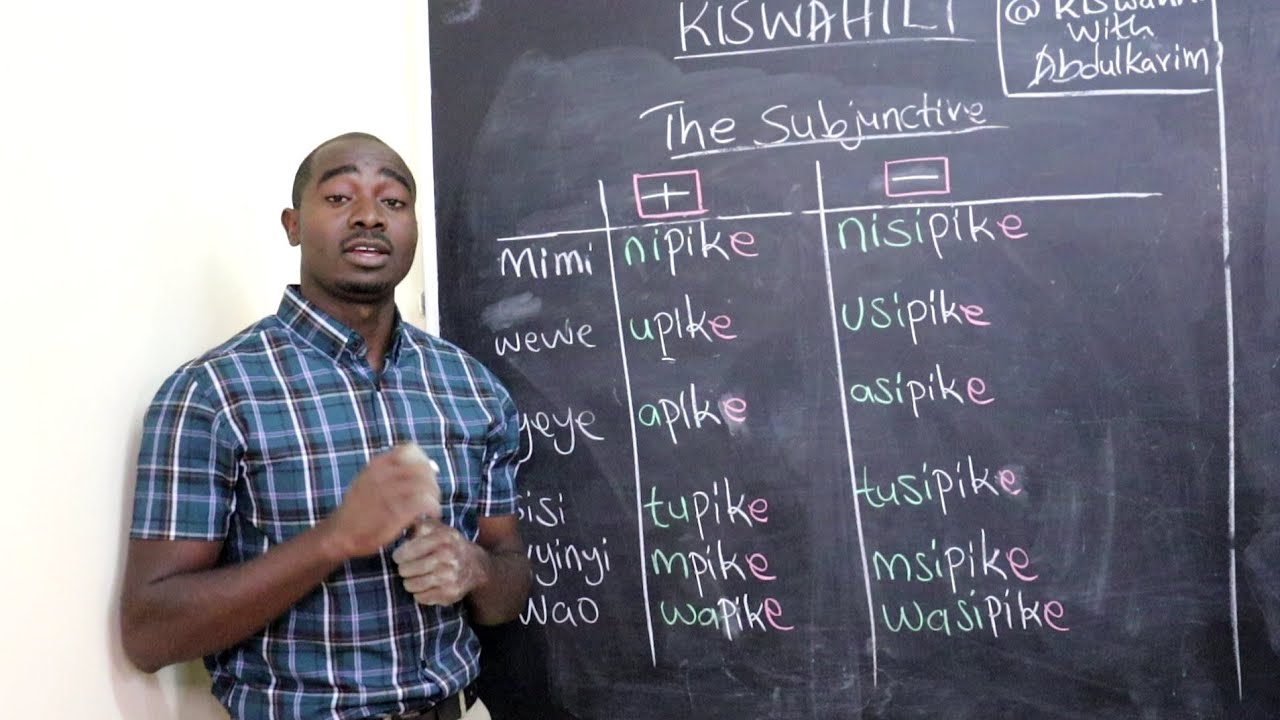 KISWAHILI
@ Kiswahili
with
Abdulkarim
The Subjunctive
+ −
Mimi nipike nisipike
wewe upike usipike
yeye apike asipike
sisi tupike tusipike
nyinyi mpike msipike
wao wapike wasipike